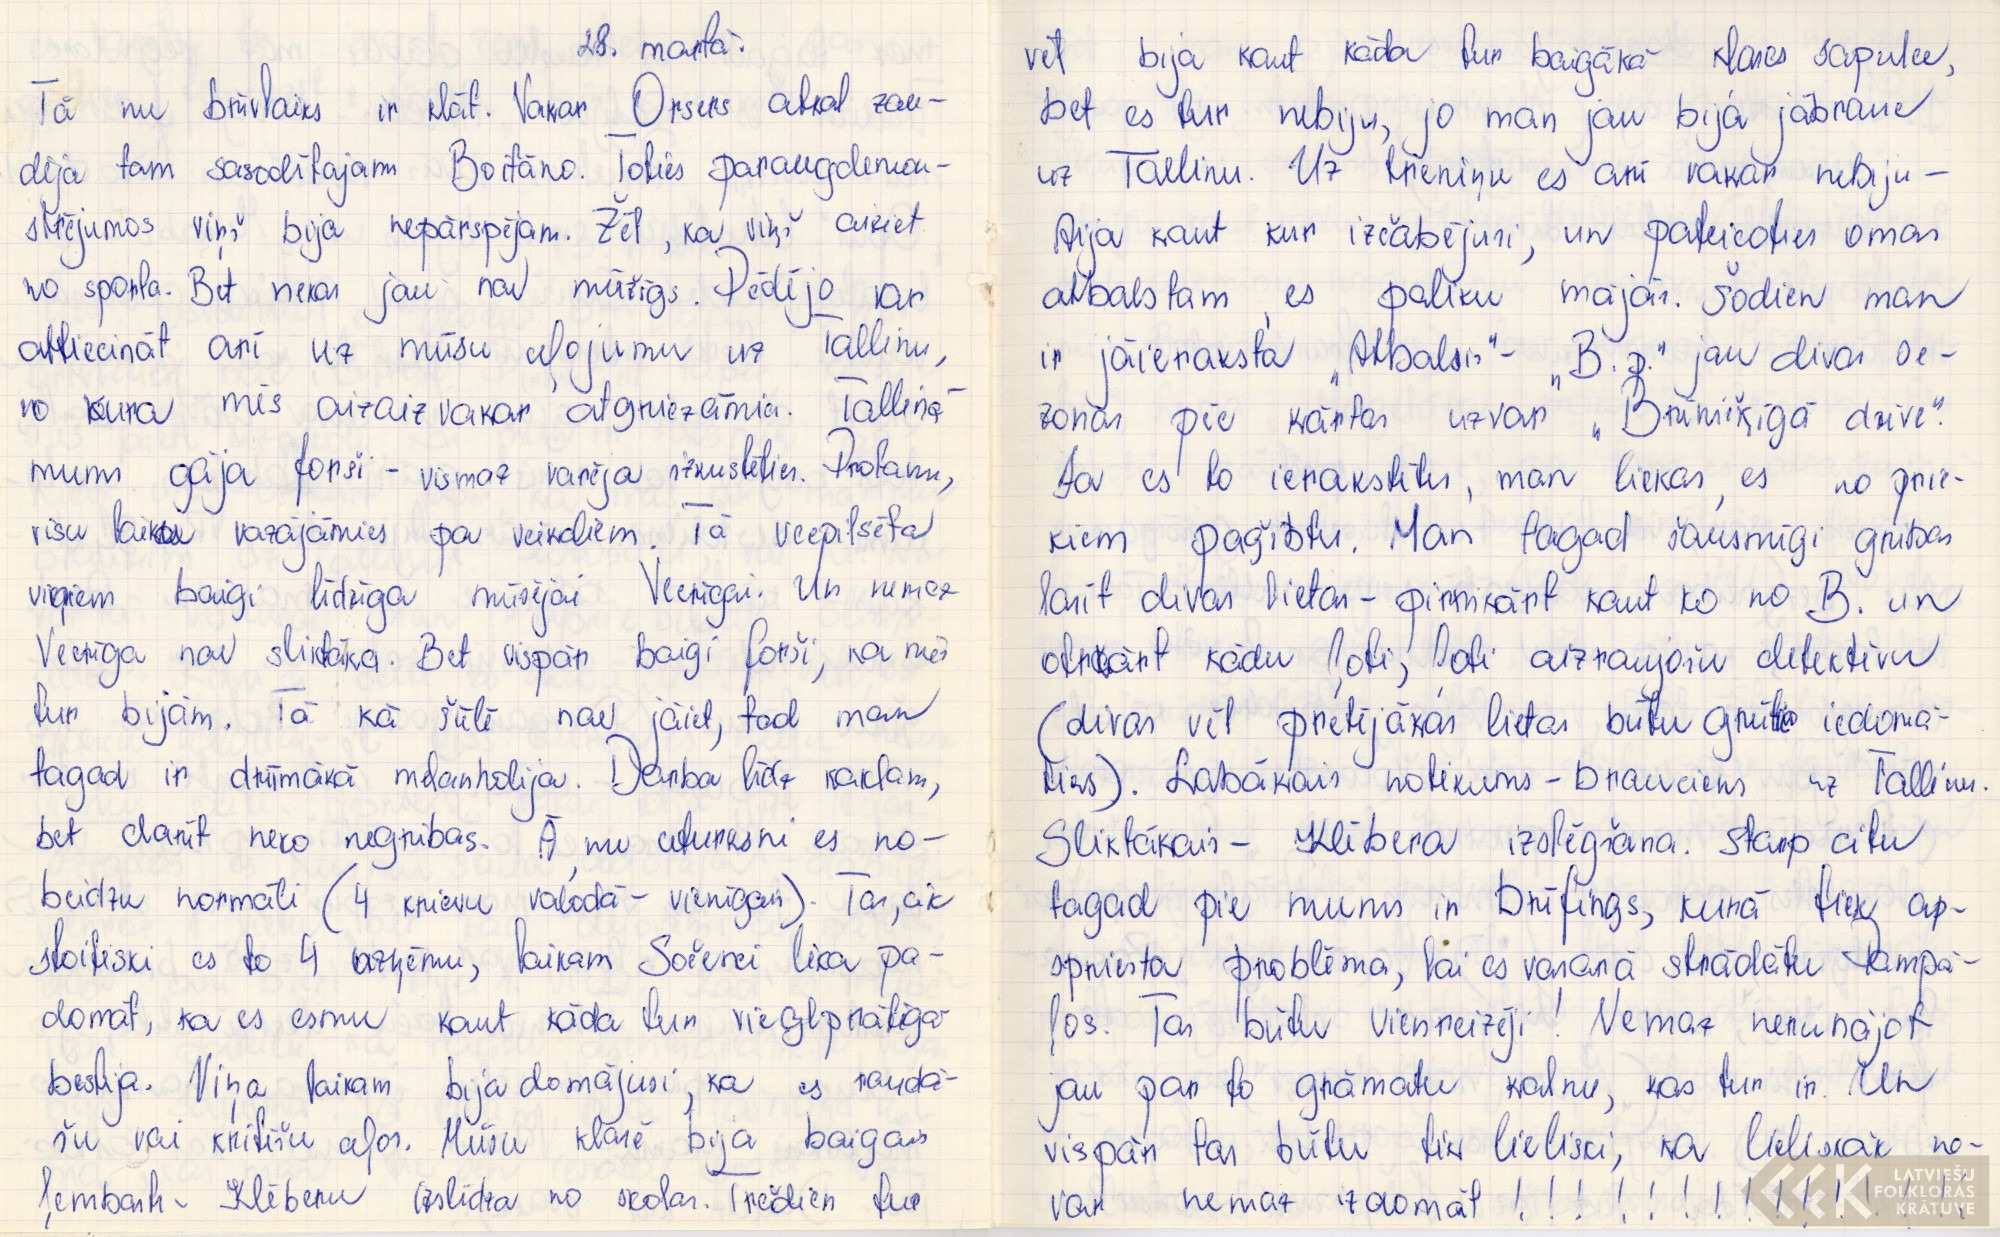 28. martā.
Tā nu brīvlaiks ir klāt. Vakar Orsers atkal zau-
dēja tam sasodītajam Boitāno. Toties paraugdemon-
strējumos viņš bija nepārspējam. Žēl, ka viņš aiziet
no sporta. Bet nekas jau nav mūžīgs. Pēdējo var
attiecināt arī uz mūsu ceļojumu uz Tallinu,
no kura mēs aizaizvakar atgriezāmies. Tallinā
mums gāja forši - vismaz varēja izkustēties. Protams,
visu laiku vazājāmies pa veikaliem. Tā vecpilsēta
viņiem baigi līdzīga mūsējai Vecrīgai. Un nemaz
Vecrīga nav sliktāka. Bet vispār baigi forši, ka mēs
tur bijām. Tā kā šūlē nav jāiet, tad man
tagad ir drūmākā melanholija. Darba līdz kaklam,
bet darīt neko negribas. Ā, nu ceturksni es no-
beidzu normāli (4 krievu valodā - vienīgais). Tas, cik
stoiciski es to 4 uzņēmu, laikam Sočenci lika pa-
domāt, ka es esmu kaut kāda tur vieglprātīga
bestija. Viņa laikam bija domājusi, ka es raudā-
šu vai kritīšu ceļos. Mūsu klasē bija baigais
ļembasts - Klēberu izslēdza no skolas. Trešdien tur
vēl bija kaut kāda tur baigākā klases sapulce,
bet es tur nebiju, jo man jau bija jābrauc
uz Tallinu. Uz treniņu es arī vakar nebiju -
Aija kaut kur izčabējusi, un pateicoties omas
atbalstam, es paliku mājās. Šodien man
ir jāieraksta „Atbalsis" - „B.p." jau divas se-
zonas pēc kārtas uzvar „Brīnišķīgā dzīve".
Ja es to ierakstītu, man liekas, es no prie-
kiem paģībtu. Man tagad šausmīgi gribas
lasīt divas lietas - pirmkārt kaut ko no B. un
otrkārt kādu ļoti, ļoti aizraujošu detektīvu
(divas vēl pretējākas lietas būtu grūti iedomā-
ties). Labākais notikums - brauciens uz Tallinu.
Sliktākais - Klēbera izslēgšana. Starp citu
tagad pie mums ir brīfings, kurā tiek ap-
spriesta problēma, lai es vasarā strādātu Jampā-
ļos. Tas būtu vienreizēji! Nemaz nerunājot
jau par to grāmatu kalnu, kas tur ir. Un
vispār tas būtu tik lieliski, ka lieliskāk ne-
var nemaz izdomāt !!!!!!!!!!!!!!
LATVIEŠU
FOLKLORAS
KRĀTUVE